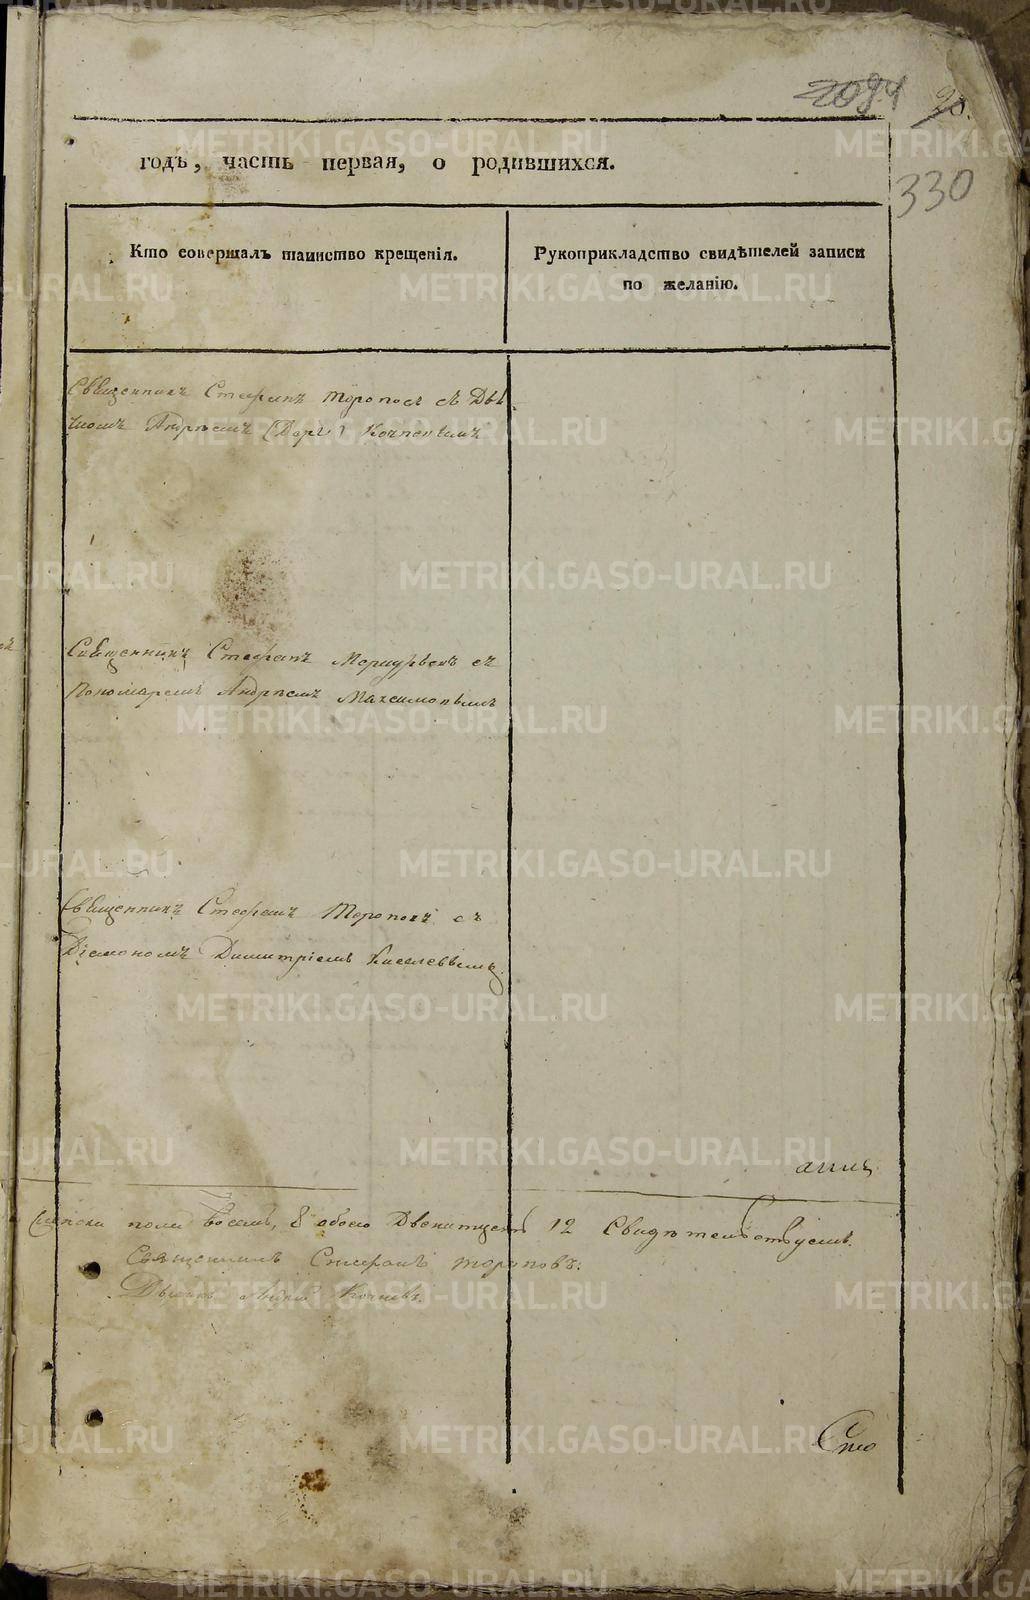 2094 20.
годъ, часть первая, о родившихся.
330
Кто совершалъ таинство крещенія.
Рукоприкладство свидѣтелей записи
по желанію.
Священникъ Стефанъ Тороповъ съ Дья
Андреемъ
Священникъ Стефанъ Меркурьевъ съ
Пономаремъ Андреемъ Максимовымъ
Священникъ Стефанъ Тороповъ съ
Діякономъ Димитріемъ Киселевымъ.
пола восемь, 8 обоего Двенатцеть 12 Свидѣтельствуемъ.
Священникъ Стефанъ Тороповъ.
METRIKI.GASO-URAL.RU